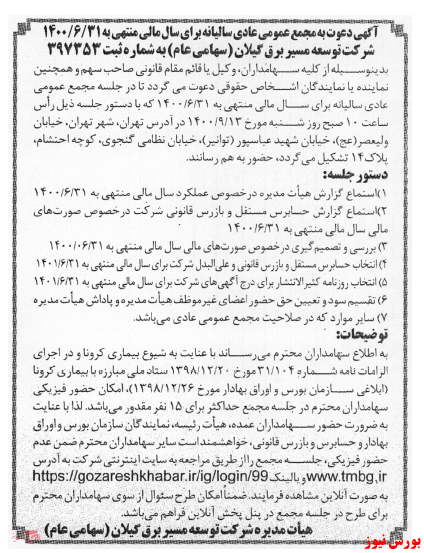 آگهی دعوت به مجمع عمومی عادی سالیانه برای سال مالی منتهی به ۱۴۰۰/۶/۳۱
شرکت توسعه مسیر برق گیلان (سهامی عام) به شماره ثبت ۳۹۷۳۵۳
بدینوسیله از کلیه سهامداران، وکیل یا قائم مقام قانونی صاحب سهم و همچنین
نماینده یا نمایندگان اشخاص حقوقی دعوت می گردد تا در جلسه مجمع عمومی
عادی سالیانه برای سال مالی منتهی به ۱۴۰۰/۶/۳۱ که با دستور جلسه ذیل رأس
ساعت ۱۰ صبح روز شنبه مورخ ۱۴۰۰/۹/۱۳ در آدرس تهران، شهر تهران، خیابان
ولیعصر(عج)، خیابان شهید عباسپور (توانیر)، خیابان نظامی گنجوی، کوچه احتشام،
پلاک۱۴ تشکیل می گردد، حضور به هم رسانند.
دستور جلسه:
۱)استماع گزارش هیأت مدیره درخصوص عملکرد سال مالی منتهی به ۱۴۰۰/۶/۳۱
۲)استماع گزارش حسابرس مستقل و بازرس قانونی شرکت درخصوص صورت‌های
مالی سال مالی منتهی به ۱۴۰۰/۶/۳۱
۳) بررسی و تصمیم گیری درخصوص صورت‌های مالی سال مالی منتهی به ۱۴۰۰/۰۶/۳۱
۴) انتخاب حسابرس مستقل و بازرس قانونی و علی‌البدل شرکت برای سال مالی منتهی به ۱۴۰۱/۶/۳۱
۵) انتخاب روزنامه کثیرالانتشار برای درج آگهی‌های شرکت برای سال مالی منتهی به ۱۴۰۱/۶/۳۱
۶) تقسیم سود و تعیین حق حضور اعضای غیرموظف هیأت مدیره و پاداش هیأت مدیره
۷) سایر موارد که در صلاحیت مجمع عمومی عادی می‌باشد.
توضیحات:
به اطلاع سهامداران محترم می‌رساند با عنایت به شیوع بیماری کرونا و در اجرای
الزامات نامه شماره ۳۱/۱۰۴ مورخ ۱۳۹۸/۱۲/۲۰ ستاد ملی مبارزه با بیماری کرونا
(ابلاغی سازمان بورس و اوراق بهادار مورخ ۱۳۹۸/۱۲/۲۶)، امکان حضور فیزیکی
سهامداران محترم در جلسه مجمع حداکثر برای ۱۵ نفر مقدور می‌باشد. لذا با عنایت
به ضرورت حضور سهامداران عمده، هیأت رئیسه، نمایندگان سازمان بورس و اوراق
بهادار و حسابرس و بازرس قانونی، خواهشمند است سایر سهامداران محترم ضمن عدم
حضور فیزیکی، جلسه مجمع را از طریق مراجعه به سایت اینترنتی شرکت به آدرس
www.tmbg.ir وبالینک https://gozareshkhabar.ir/ig/login/99
به صورت آنلاین مشاهده فرمایند. ضمناً امکان طرح سئوال از سوی سهامداران محترم
برای طرح در جلسه مجمع در پنل پخش آنلاین فراهم می‌باشد.
هیأت مدیره شرکت توسعه مسیر برق گیلان (سهامی عام)
بورس نیوز